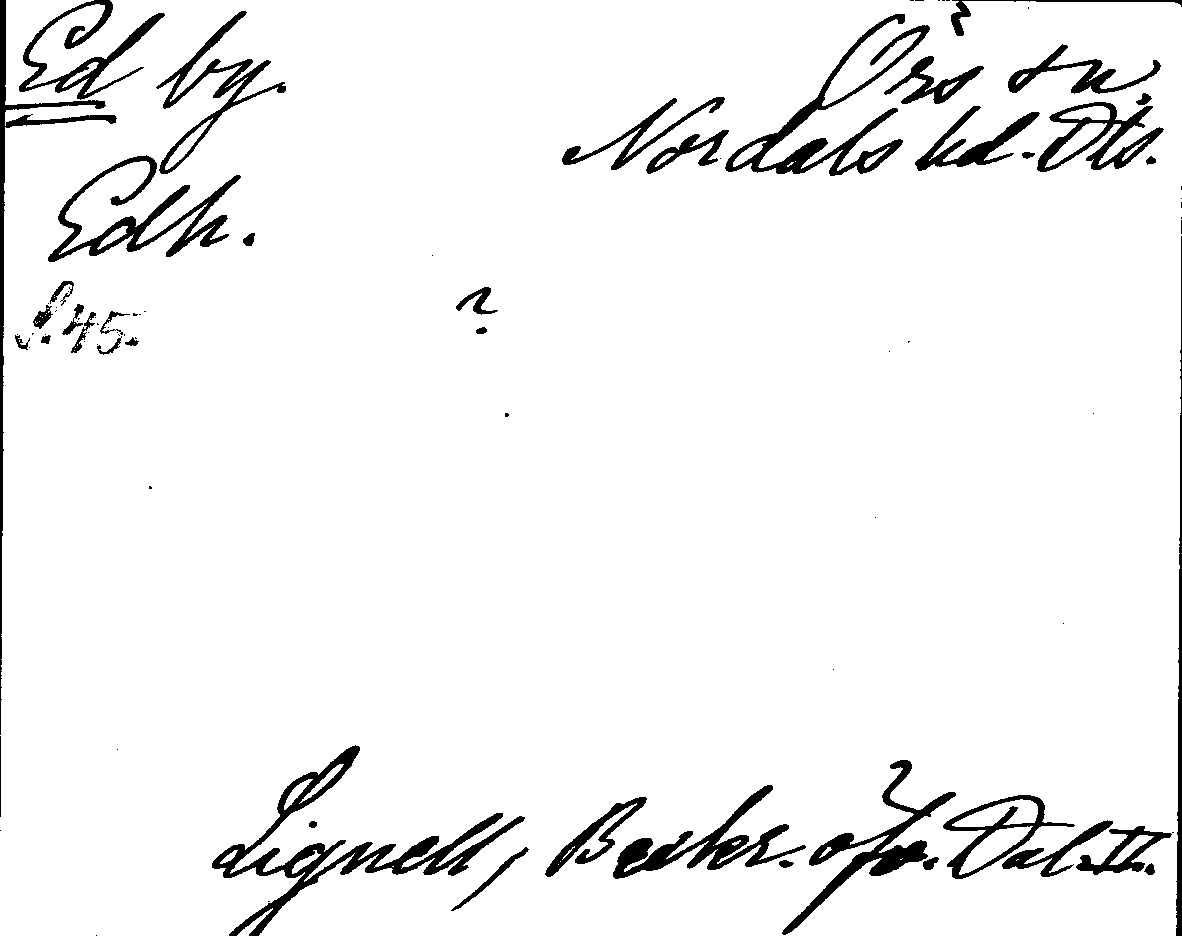 Ed by.
Örs sn.
Nordals hd. Dls.
Edh.
S. 45.
?
Lignell, Beskr. öfv. Dal. II.